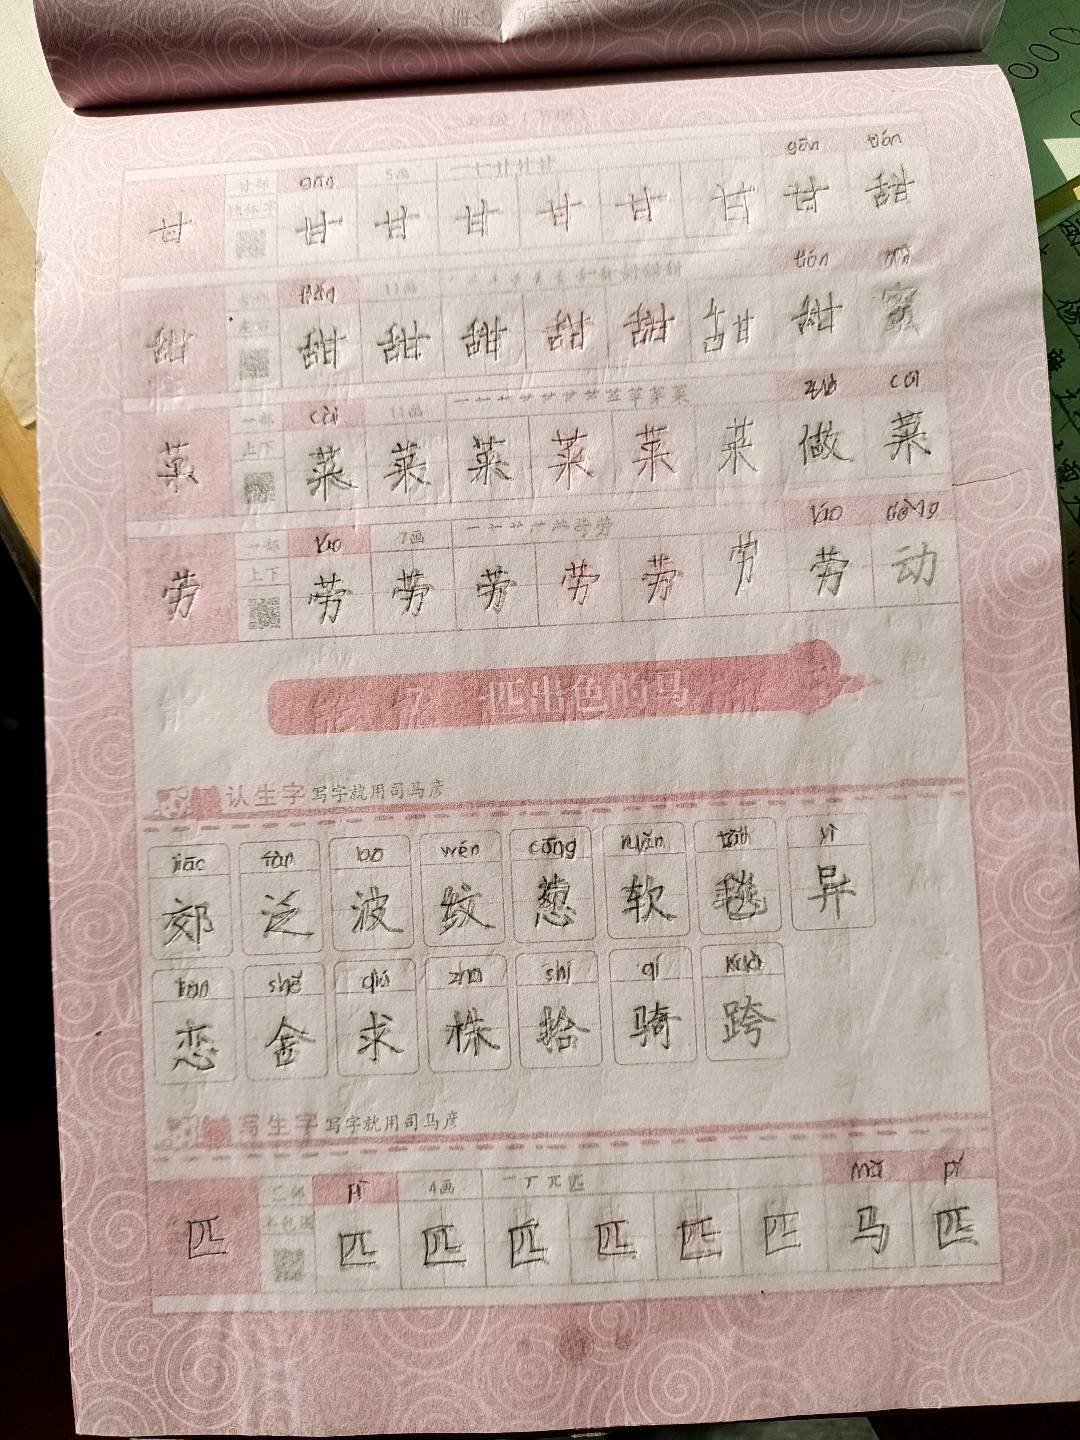 gān tián
甘部 gān 5画 一十廿甘甘
甘 独体字 甘 甘 甘 甘 甘 甘 甘 甜
tián mì
舌部 tián 11画
甜 左右 甜 甜 甜 甜 甜 甜 甜 蜜
zuò cài
cài 11画
菜 上下 菜 菜 菜 菜 菜 菜 做 菜
láo dòng
láo 7画
劳 上下 劳 劳 劳 劳 劳 劳 劳 动
7 一匹出色的马
认生字 写字就用司马彦
jiāo fàn bō wén cōng ruǎn tǎn yì
郊 泛 波 纹 葱 软 毯 异
liàn shě qiú zhū shí qí kuà
恋 舍 求 株 拾 骑 跨
写生字 写字就用司马彦
mǎ pǐ
匚部 pǐ 4画 一丆兀匹
匹 半包围 匹 匹 匹 匹 匹 匹 马 匹